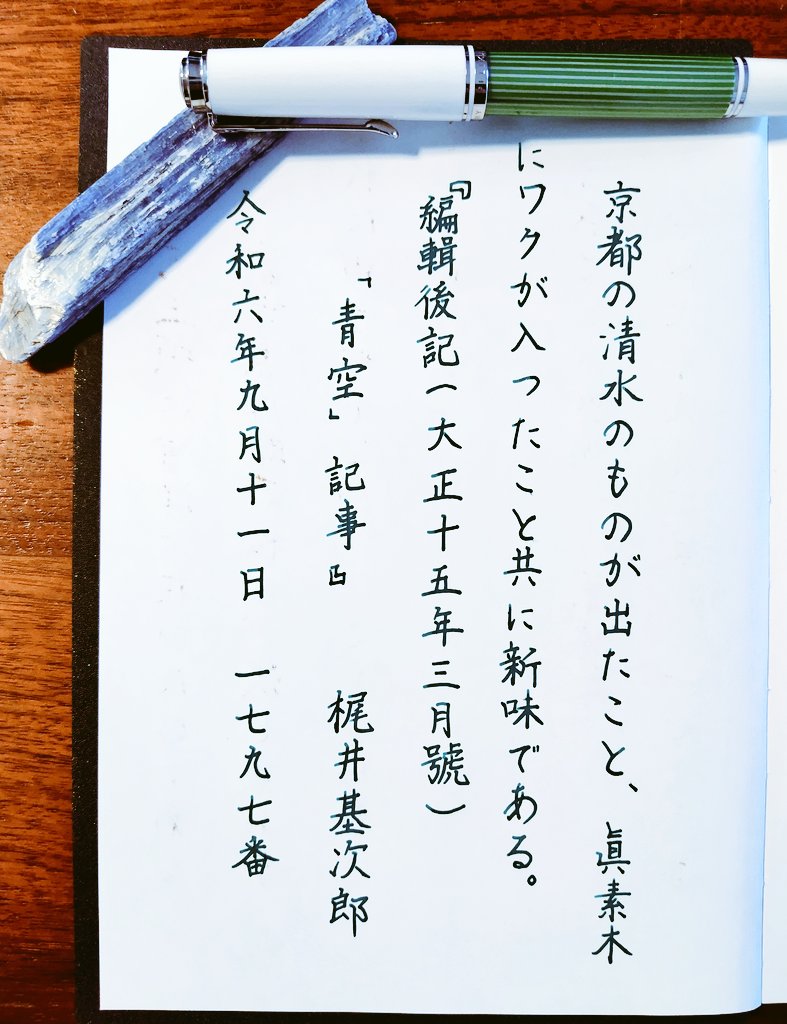 京都の清水のものが出たこと、眞素木
にワクが入つたこと共に新味である。
『編輯後記(大正十五年三月號)
「青空」記事』 梶井基次郎
令和六年九月十一日 一七九七番